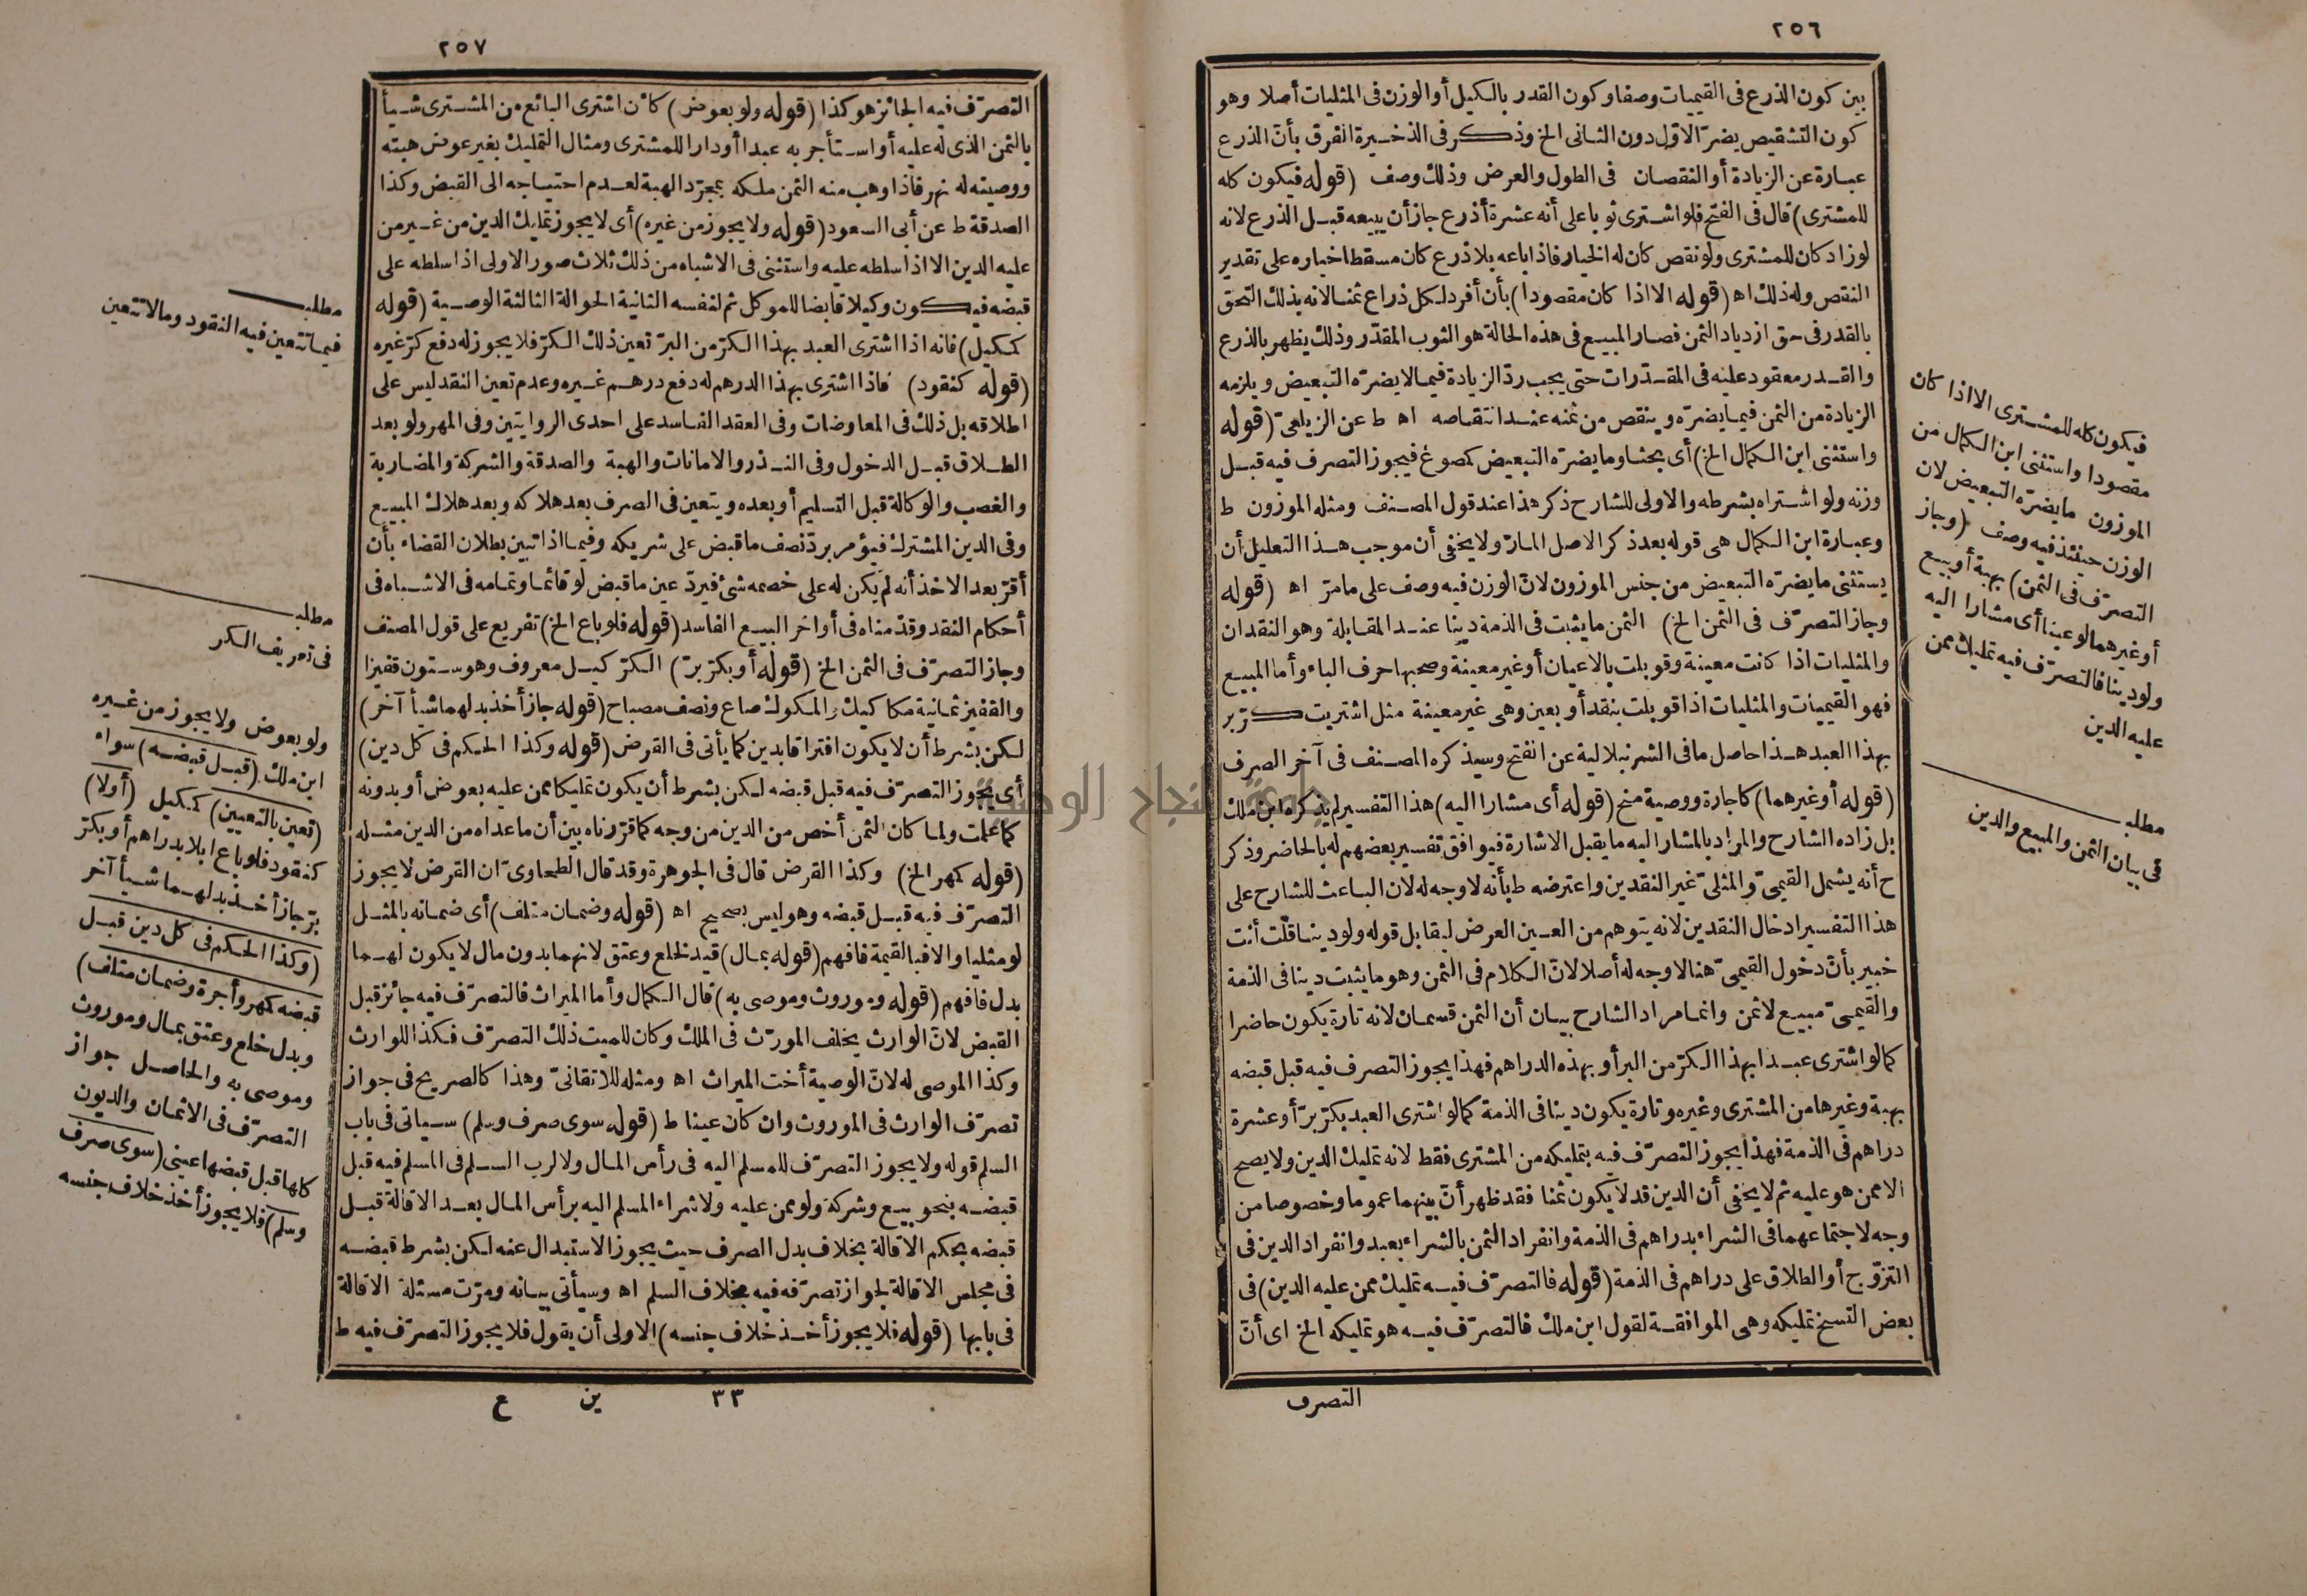 ٢٥٦
بين كون الذرع في القيميات وصفا وكون القدر بالكيل أو الوزن في المثليات أصلا وهو
كون التشقيص يضرّ الاوّل دون الثانى الخ وذكر في الذخيرة الفرق بأنّ الذرع
عبارة عن الزيادة أو النقصان في الطول والعرض وذلك وصف (قوله فيكون كله
للمشترى) قال في الفتح فلو اشترى ثوبا على أنه عشرة أذرع جاز أن يبيعه قبل الذرع لانه
لوزاد كان للمشترى ولو نقص كان له الخيار فاذا باعه بلا ذرع كان مسقطا خياره على تقدير
النقص وله ذلك اه (قوله الا اذا كان مقصودا) بأن أفرد لكل ذراع ثمنا لانه بذلك التحق
بالقدر في حق ازدياد الثمن فصار المبيع في هذه الحالة هو الثوب المقدّر وذلك يظهر بالذرع
والقدر معقود عليه في المقدّرات حتى يجب ردّ الزيادة فيما لا يضرّه التبعيض ويلزمه
الزيادة من الثمن فيما يضرّه وينقص من ثمنه عند انتقاصه اه ط عن الزيلعىّ (قوله
واستثنى ابن الكمال الخ) أى بحثا وما يضرّه التبعيض كمصوغ فيجوز التصرف فيه قبل
وزنه ولو اشتراه بشرطه والاولى للشارح ذكر هذا عند قول المصنف ومثله الموزون ط
وعبارة ابن الكمال هى قوله بعد ذكر الاصل المارّ ولا يخفى أن موجب هذا التعليل أن
يستثنى ما يضرّه التبعيض من جنس الموزون لانّ الوزن فيه وصف على مامرّ اه (قوله
وجاز التصرّف في الثمن الخ) الثمن ما يثبت في الذمة دينا عند المقابلة وهو النقدان
والمثليات اذا كانت معينة وقوبلت بالاعيان أو غير معينة وصحبها حرف الباء وأما المبيع
فهو القيميات والمثليات اذا قوبلت بنقد أو بعين وهى غير معينة مثل اشتريت كرّ بر
بهذا العبد هذا حاصل ما في الشرنبلالية عن الفتح وسيذكره المصنف في آخر الصرف
(قوله أو غيرهما) كاجارة ووصية منح (قوله أى مشارا اليه) هذا التفسير لم يذكره ابن ملك
بل زاده الشارح والمراد بالمشار اليه ما يقبل الاشارة فيوافق تفسير بعضهم له بالحاضر وذكر
ح أنه يشمل القيمىّ والمثلىّ غير النقدين واعترضه ط بأنه لا وجه له لان الباعث للشارح على
هذا التفسير ادخال النقدين لانه يتوهم من العين العرض ليقابل قوله ولو دينا قلت أنت
خبير بأنّ دخول القيمىّ هنا لا وجه له أصلا لانّ الكلام في الثمن وهو ما يثبت دينا في الذمة
والقيمىّ مبيع لا ثمن وانما مراد الشارح بيان أن الثمن قسمان لانه تارة يكون حاضرا
كما لو اشترى عبدا بهذا الكرّ من البر أو بهذه الدراهم فهذا يجوز التصرف فيه قبل قبضه
بهبة وغيرها من المشترى وغيره وتارة يكون دينا في الذمة كما لو اشترى العبد بكرّ برّ أو عشرة
دراهم في الذمة فهذا يجوز التصرّف فيه بتمليكه من المشترى فقط لانه تمليك الدين ولا يصح
الا ممن هو عليه ثم لا يخفى أن الدين قد لا يكون ثمنا فقد ظهر أنّ بينهما عموما وخصوصا من
وجه لاجتماعهما في الشراء بدراهم في الذمة وانفراد الثمن بالشراء بعبد وانفراد الدين في
التزوّج أو الطلاق على دراهم في الذمة (قوله فالتصرّف فيه تمليك ممن عليه الدين) في
بعض النسخ تمليكه وهى الموافقة لقول ابن ملك فالتصرّف فيه هو تمليكه الخ اى أنّ
التصرف
فيكون كله للمشترى الا اذا كان
مقصودا واستثنى ابن الكمال من
الموزون ما يضرّه التبعيض لان
الوزن حينئذ فيه وصف (وجاز
التصرّف في الثمن) بهبة أو بيع
أو غيرهما لو عينا أى مشارا اليه
ولو دينا فالتصرّف فيه تمليك ممن
عليه الدين
مطلب
في بيان الثمن والمبيع والدين
٢٥٧
التصرّف فيه الجائز هو كذا (قوله ولو بعوض) كأن اشترى البائع من المشترى شيأ
بالثمن الذى له عليه أو استأجر به عبدا أو دارا للمشترى ومثال التمليك بغير عوض هبته
ووصيته له نهر فاذا وهب منه الثمن ملكه بمجرّد الهبة لعدم احتياجه الى القبض وكذا
الصدقة ط عن أبى السعود (قوله ولا يجوز من غيره) أى لا يجوز تمليك الدين من غير من
عليه الدين الا اذا سلطه عليه واستثنى في الاشباه من ذلك ثلاث صور الاولى اذا سلطه على
قبضه فيكون وكيلا قابضا للموكل ثم لنفسه الثانية الحوالة الثالثة الوصية (قوله
كمكيل) فانه اذا اشترى العبد بهذا الكرّ من البرّ تعين ذلك الكرّ فلا يجوز له دفع كرّ غيره
(قوله كنقود) فاذا اشترى بهذا الدرهم له دفع درهم غيره وعدم تعين النقد ليس على
اطلاقه بل ذلك في المعاوضات وفي العقد الفاسد على احدى الروايتين وفي المهر ولو بعد
الطلاق قبل الدخول وفي النذر والامانات والهبة والصدقة والشركة والمضاربة
والغصب والوكالة قبل التسليم أو بعده ويتعين في الصرف بعد هلاكه وبعد هلاك المبيع
وفي الدين المشترك فيؤمر بردّ نصف ما قبض على شريكه وفيما اذا تبين بطلان القضاء بأن
أقرّ بعد الاخذ أنه لم يكن له على خصمه شئ فيردّ عين ما قبض لو قائما وتمامه في الاشباه في
أحكام النقد وقدّمناه في أواخر البيع الفاسد (قوله فلو باع الخ) تفريع على قول المصنف
وجاز التصرّف في الثمن الخ (قوله أو بكرّ برّ) الكرّ كيل معروف وهو ستون قفيزا
والقفيز ثمانية مكاكيك والمكوك صاع ونصف مصباح (قوله جاز أخذ بدلهما شيأ آخر)
لكن بشرط أن لا يكون افتراقا بدين كما يأتى في القرض (قوله وكذا الحكم في كل دين)
أى يجوز التصرّف فيه قبل قبضه لكن بشرط أن يكون تمليكا ممن عليه بعوض أو بدونه
كما علمت ولما كان الثمن أخص من الدين من وجه كما قرّرناه بين أن ما عداه من الدين مثله
(قوله كمهر الخ) وكذا القرض قال في الجوهرة وقد قال الطحاوىّ ان القرض لا يجوز
التصرّف فيه قبل قبضه وهو ليس بصحيح اه (قوله وضمان متلف) أى ضمانه بالمثل
لو مثليا والا فبالقيمة فافهم (قوله بمال) قيد لخلع وعتق لانهما بدون مال لا يكون لهما
بدل فافهم (قوله وموروث وموصى به) قال الكمال وأما الميراث فالتصرّف فيه جائز قبل
القبض لانّ الوارث يخلف المورّث في الملك وكان للميت ذلك التصرّف فكذا للوارث
وكذا الموصى له لانّ الوصية أخت الميراث اه ومثله للاتقانىّ وهذا كالصريح في جواز
تصرّف الوارث في الموروث وان كان عينا ط (قوله سوى صرف وسلم) سيأتى في باب
السلم قوله ولا يجوز التصرّف للمسلم اليه في رأس المال ولا لرب السلم في المسلم فيه قبل
قبضه بنحو بيع وشركة ولو ممن عليه ولا شراء المسلم اليه برأس المال بعد الاقالة قبل
قبضه بحكم الاقالة بخلاف بدل الصرف حيث يجوز الاستبدال عنه لكن بشرط قبضه
في مجلس الاقالة لجواز تصرّفه فيه بخلاف السلم اه وسيأتى بيانه ومرّت مسئلة الاقالة
في بابها (قوله فلا يجوز أخذ خلاف جنسه) الاولى أن يقول فلا يجوز التصرّف فيه ط
٣٣ ين ع
مطلب
فيما تتعين فيه النقود وما لا تتعين
مطلب
في تعريف الكر
ولو بعوض ولا يجوز من غيره
ابن ملك (قبل قبضه) سواء
(تعين بالتعيين) كمكيل (أولا)
كنقود فلو باع ابلا بدراهم أو بكرّ
برّ جاز أخذ بدلهما شيأ آخر
(وكذا الحكم في كل دين قبل
قبضه كمهر وأجرة وضمان متلف)
وبدل خلع وعتق بمال وموروث
وموصى به والحاصل جواز
التصرّف في الاثمان والديون
كلها قبل قبضها عينى (سوى صرف
وسلم) فلا يجوز أخذ خلاف جنسه